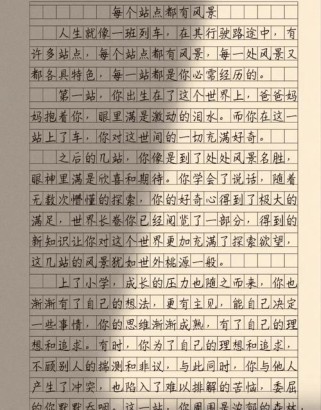 每个站点都有风景
人生就像一班列车，在其行驶路途中，有
许多站点，每个站点都有风景，每一处风景又
都各具特色，每一站都是你必需经历的。
第一站，你出生在了这个世界上，爸爸妈
妈抱着你，眼里满是激动的泪水。而你在这一
站上了车，你对这世间的一切充满好奇。
之后的几站，你像是到了处处风景名胜，
眼神里满是欣喜和期待。你学会了说话，随着
无数次懵懂的探索，你的好奇心得到了极大的
满足，世界长卷你已经阅览了一部分，得到的
新知识让你对这个世界更加充满了探索欲望，
这几站的风景犹如世外桃源一般。
上了小学，成长的压力也随之而来，你也
渐渐有了自己的想法，更有主见，能自己决定
一些事情，你的思维渐渐成熟，有了自己的理
想和追求。有时，你为了自己的理想和追求，
不顾别人的揣测和非议，与此同时，你与他人
产生了冲突，也陷入了难以排解的苦恼，委屈
的你默默吞咽。这一站，你周围是浓郁的森林